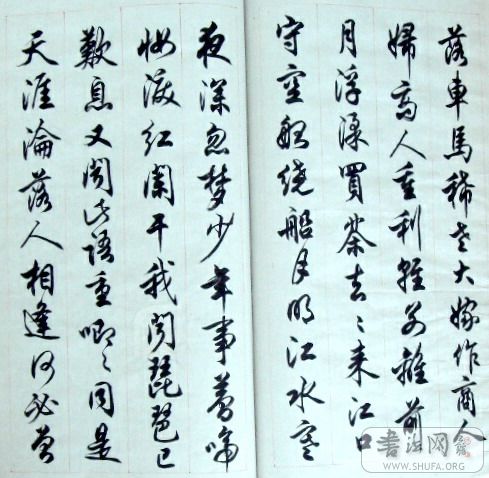 落車馬稀老大嫁作商人
婦商人重利輕別離前
月浮梁買茶去〻來江口
守空船繞船月明江水寒
夜深忽夢少年事夢啼
妝淚紅闌干我聞琵琶已
歎息又聞此語重唧〻同是
天涯淪落人相逢何必曾
書法网
WWW.SHUFA.ORG